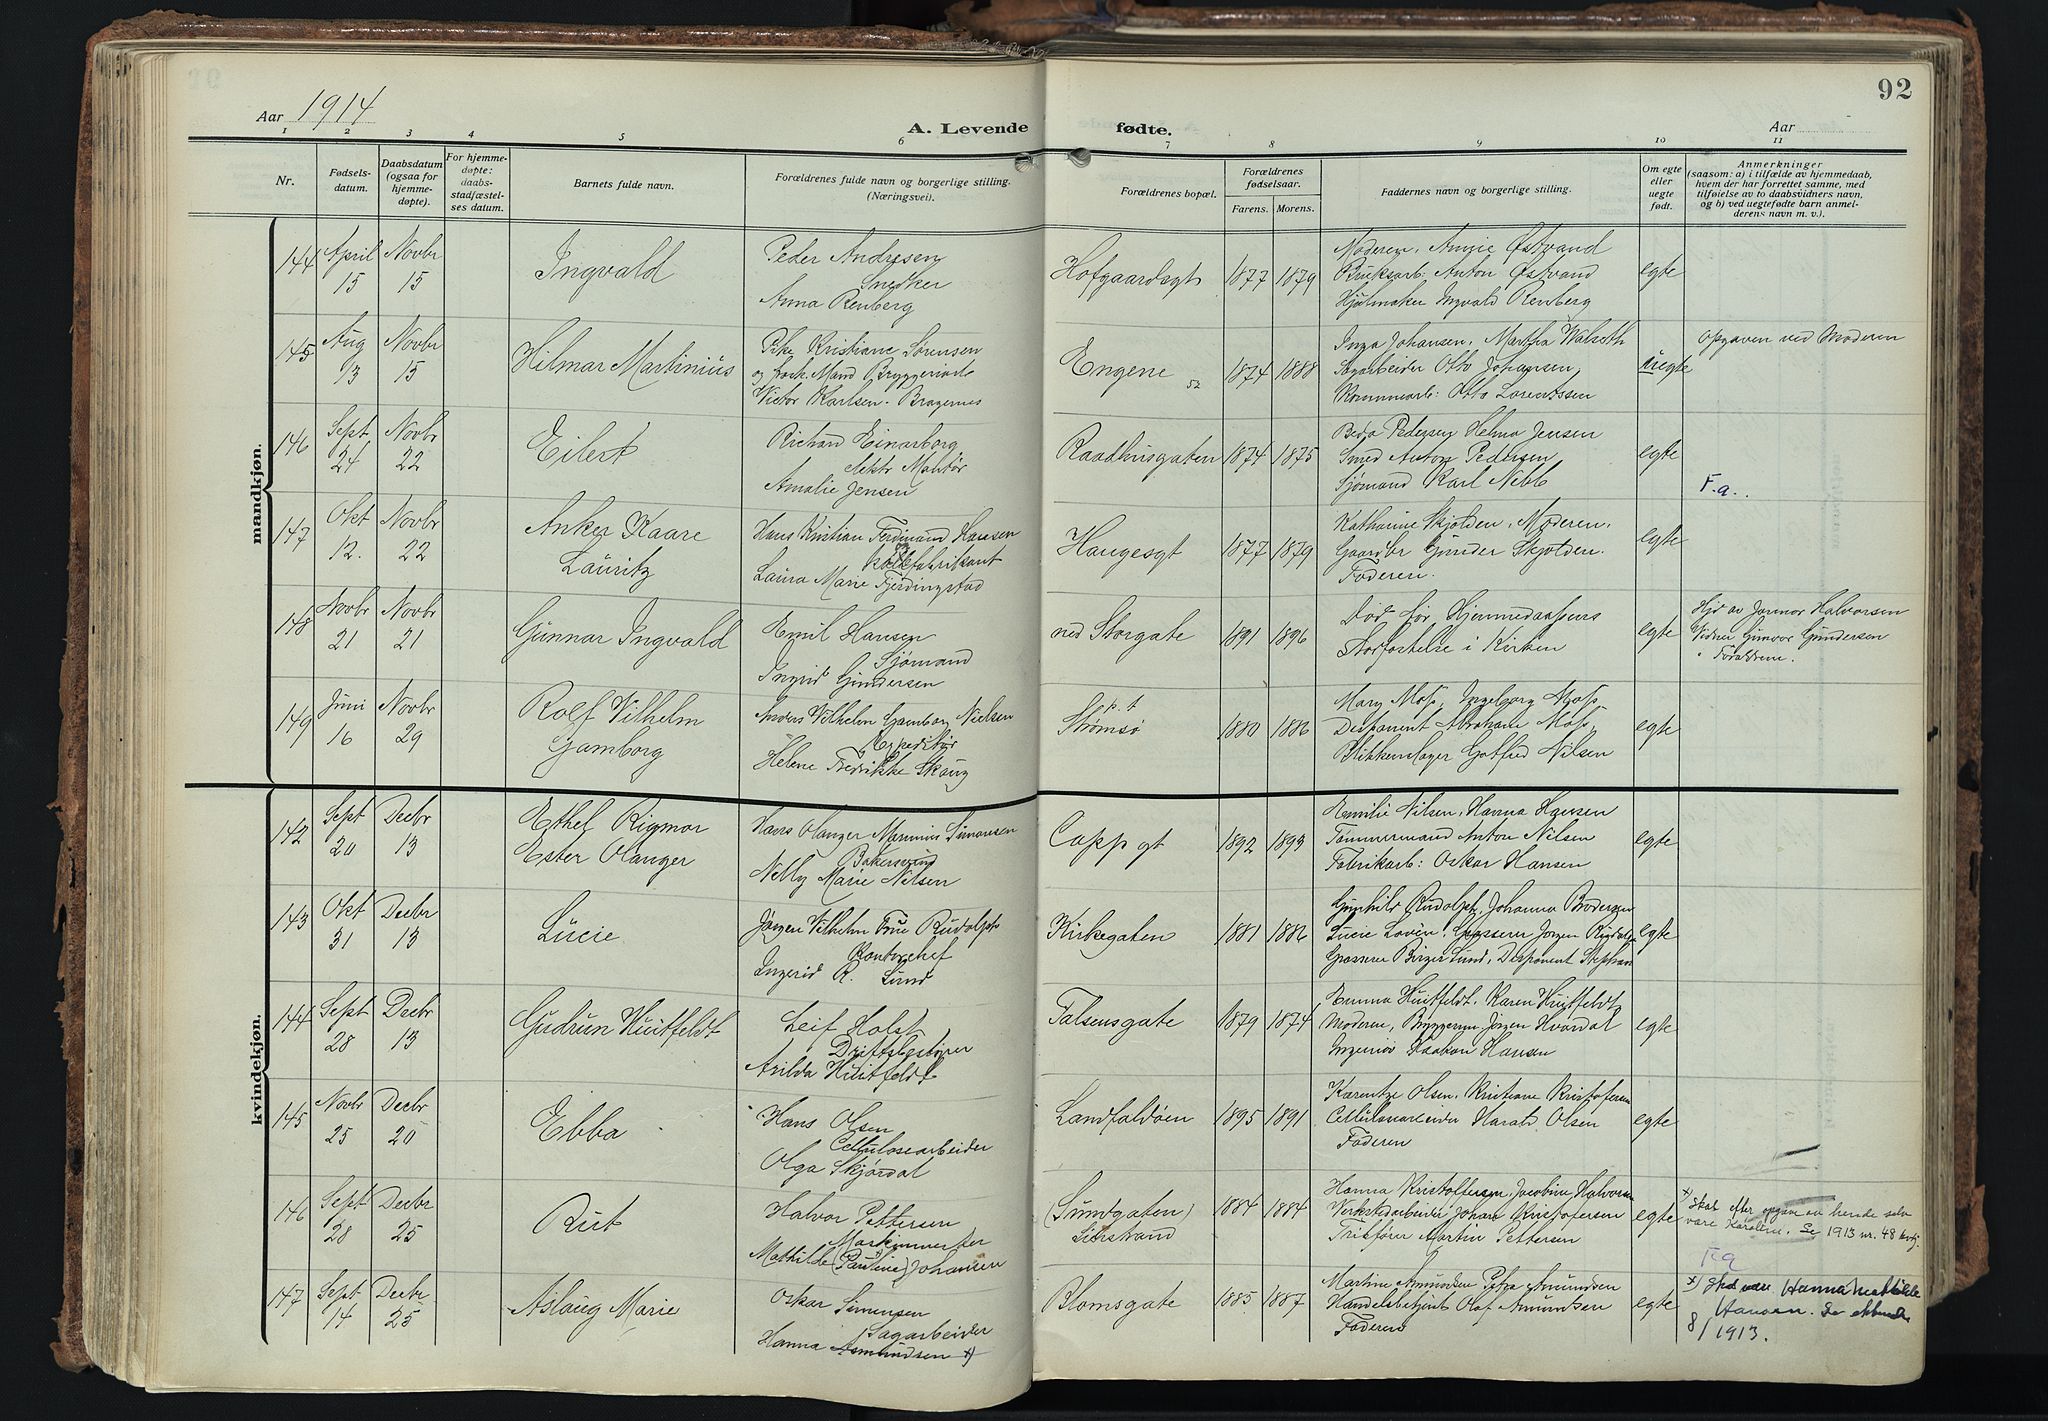 92
Aar 1914
A. Levende fødte.
Aar
1 2 3 4 5 6 7 8 9 10 11
Nr.
Fødselsdatum.
Daabsdatum (ogsaa for hjemmedøpte).
For hjemmedøpte: daabsstadfæstelses datum.
Barnets fulde navn.
Forældrenes fulde navn og borgerlige stilling. (Næringsvei).
Forældrenes bopæl.
Forældrenes fødselsaar.
Farens. Morens.
Faddernes navn og borgerlige stilling.
Om egte eller uegte født.
Anmerkninger
(saasom: a) i tilfælde av hjemmedaab,
hvem der har forrettet samme, med
tilføielse av to daabsvidners navn,
og b) ved uegtefødte barn anmel-
derens navn m. v.).
mandkjøn.
144 April 15 Novbr 15 Ingvald
Peder Andresen
Snedker
Anna Renberg
Hofgaardsgt 1877 1879
Moderen, Annie Østvand
Bruksarb. Anton Østvand
Hjulmaker Ingvald Renberg
egte
145 Aug 13 Novbr 15 Hilmar Martinius
Pike Kristiane Sørensen
og fork. Mand Bryggeriarb
Victor Karlsen. Bragernes
Engene 52 1874 1888
Inga Johansen, Martha Walseth
Sagarbeider Otto Johansen,
Otto Lorentssen
uegte
Opgaven ved Moderen
146 Sept 24 Novbr 22 Eilert
Richard Einarborg
Amalie Jensen
Raadhusgaten 1874 1875
Pedersen Helma Jensen
Smed Anton Pedersen
Sjømand Karl
egte
F.a..
147 Okt 12. Novbr 22 Anker Kaare
Lauritz
Hans Kristian Ferdinand Hansen
Laura Marie Fjerdingstad
Haugesgt 1877 1879
Katharine Skjolden, Moderen,
Gaardbr Gunder Skjolden.
Faderen.
egte
148 Novbr 21 Novbr 21 Gunnar Ingvald
Emil Hansen
Sjømand
Ingrid Gundersen
ned Storgate 1891 1896
Død før Hjemmedaabens
Stadfæstelse i Kirken
egte
Hjd av Jormor Halvorsen
Vidner Gunvor Gundersen
Forældrene.
149 Juni 16 Novbr 29 Rolf Vilhelm
Gamborg
Anders Vilhelm Gamborg Nielsen
Expeditør
Helene Fredrikke Skaug
p.t
Strømsø 1880 1886
Mary Moss, Ingeborg Moss,
Disponent Abraham Moss,
Blikkenslager Gotfred Nilsen
egte
kvindekjøn.
142 Sept 20 Decbr 13 Ethel Rigmor
Ester Olanger
Hans Olanger Simonsen
Bakersvend
Nelly Marie Nilsen
Cappgt 1892 1893
Emilie Nilsen, Hanna Hansen
Tømmermand Anton Nilsen
Fabrikarb: Oskar Hansen
egte
143 Okt 31 Decbr 13 Lucie
Jørgen Vilhelm Rudolph
Kontorchef
Ingerid R. Lund
Kirkegaten 1881 1886
Gunhild Rudolph, Johanna Brodersen
Lucie Lovén, Grosserer Jørgen Rudolph
Grosserer Birger Lund, Disponent Stephan
egte
144 Sept 28 Decbr 13 Gudrun Huitfeldt
Leif Holst
Driftsbestyrer
Arilda Huitfeldt
Falsensgate 1879 1874
Emma Huitfeldt, Karen Huitfeldt
Moderen, Jørgen
Ingeniør Haakon Hansen
egte
145 Novbr 25 Decbr 20 Ebba
Hans Olsen
Cellulosearbeider
Olga Skjørdal
Landfaldøen 1895 1891
Karentze Olsen, Kristiane Kristofersen
Cellulosearbeider Harald Olsen
Faderen
egte
146 Sept 28 Decbr 25 Rut
Halvor Pettersen
Maskinmester
Mathilde (Pauline) Johansen
(Sundgaten)
1884 1884
Hanna Kristoffersen, Jacobine Halvorsen
Verkstedarbeider Johan Kristofersen
Martin Pettersen
egte
x) Skal efter opgave av hende selv
være Karoline. Se 1913 nr. 48 kvkj.
F.a
147 Sept 14 Decbr 25 Aslaug Marie
Oskar Simensen
Sagarbeider
Hanna Asmundsen x)
Blomsgate 1885 1887
Martine Amundsen Petra Amundsen
Handelsbetjent Olaf Amundsen
Faderen
egte
x) Skal være Hanna Mathilde
Hansen. Se
8/1913.